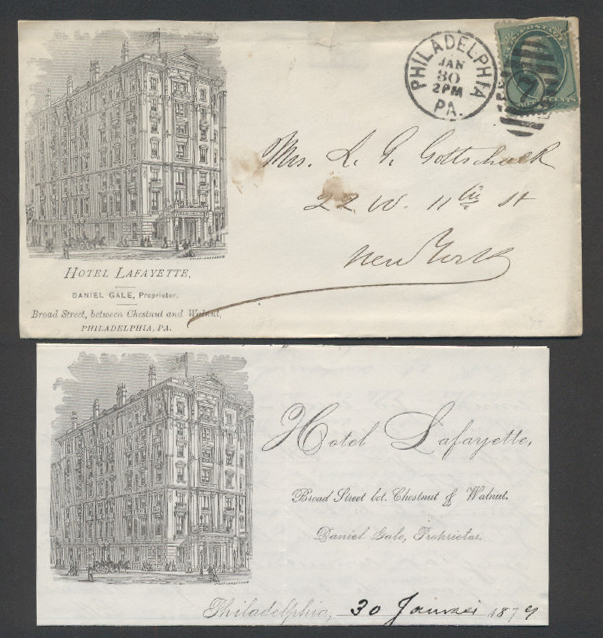 PHILADELPHIA
JAN
30
2PM
PA.
Mrs. L. G. Gottschalk
22 W. 11th St
New York
HOTEL LAFAYETTE,
DANIEL GALE, Proprietor.
Broad Street, between Chestnut and Walnut,
PHILADELPHIA, PA.
Hotel Lafayette,
Broad Street bet. Chestnut & Walnut.
Daniel Gale, Proprietor.
Philadelphia, 30 Januar 1879